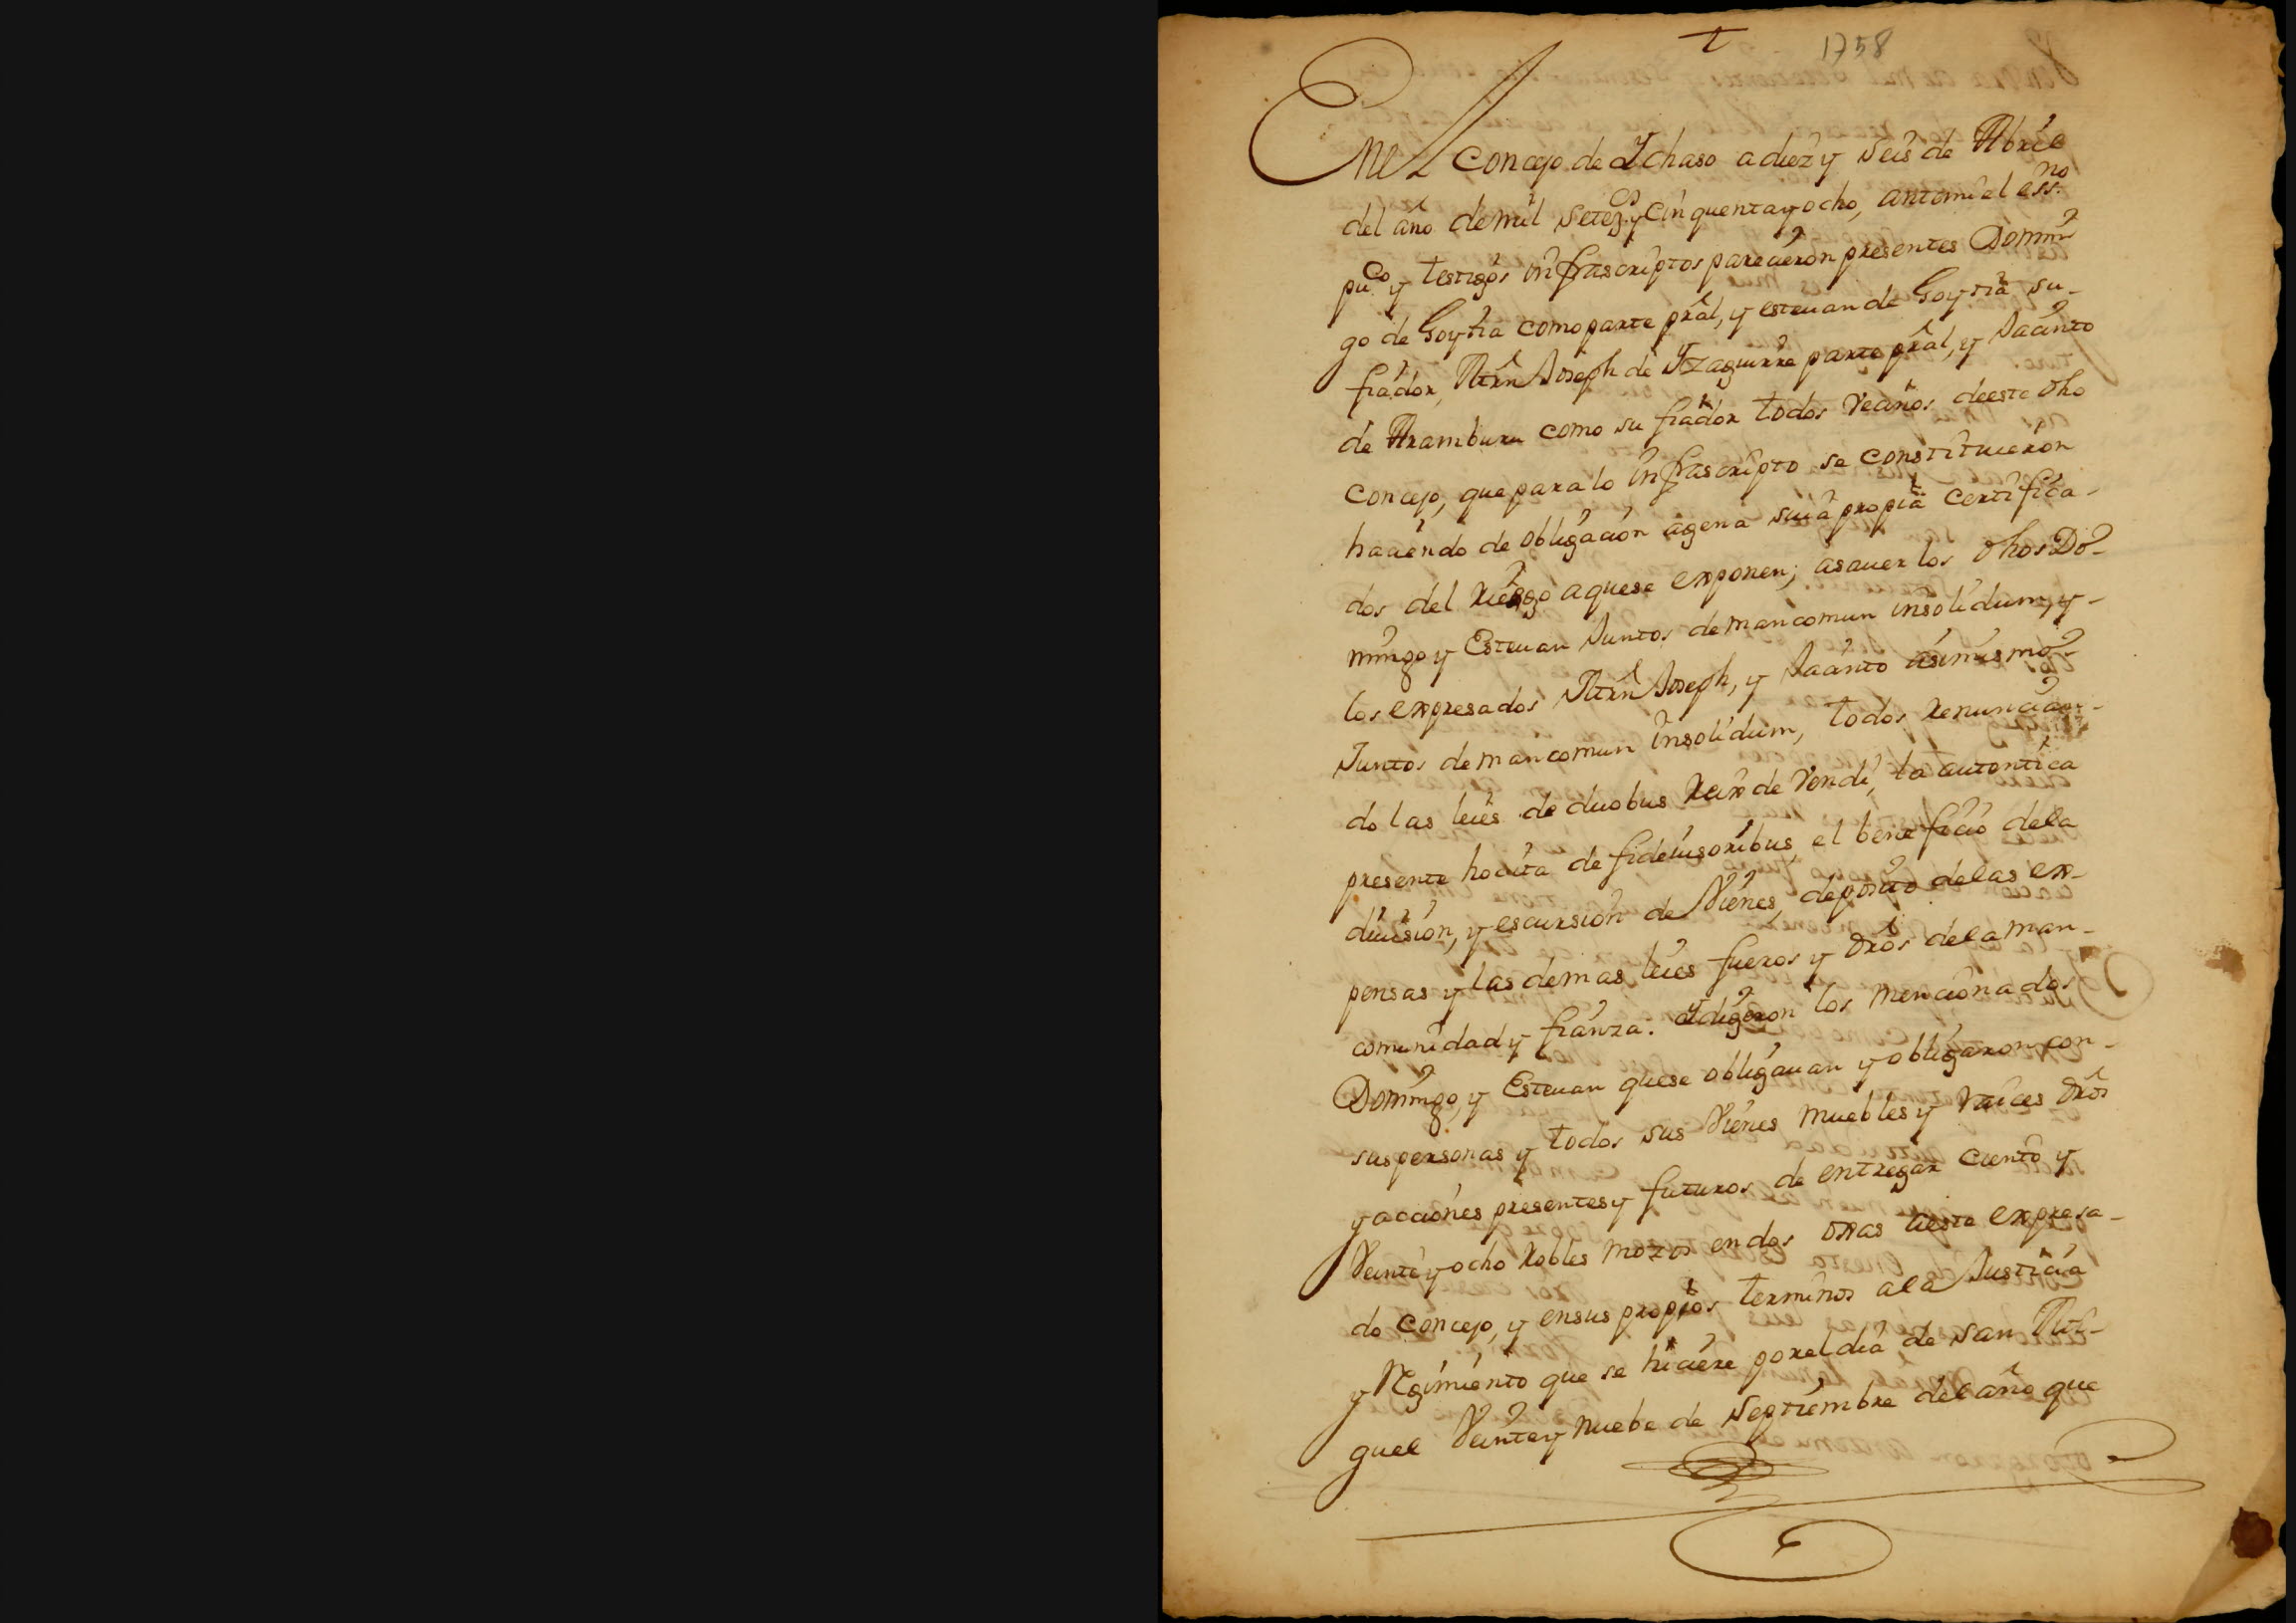 1758
En el Concejo de Ychaso a diez y seis de Abril
del año de mil setez.cos y Cinquenta y ocho, ante mi el ess.no
pu.co y testigos infrascriptos parecieron presentes Domin
go de Goytia como parte prâl, y esteuan de Goytia su
fiador, Mrn Joseph de Yzaguirre parte prâl, y Jacinto
de Aramburu como su fiador todos vecinos de este dho
Concejo, que para lo infrascripto se constituieron
haciendo de obligacion agena suia propia certifica-
dos del riesgo a que se exponen; a sauer los dhos Do-
mingo y Esteuan Juntos de mancomun insolidum, y-
los expresados Mrn Joseph, y Jacinto asimismo-
Juntos de mancomun insolidum, todos renuncian-
do las leies de duobus reix de vendi, la autentica
presente hocita de fideiusoribus, el beneficio dela
diuision, y escursion de Vienes, deposito delas ex-
pensas y las demas leies fueros y drôs dela man-
comunidad y fianza. Y digeron los mencionados
Domingo, y Esteuan que se obligauan y obligaron con-
sus personas y todos sus Vienes muebles y raices drôs
y acciones presentes y futuros de entregar ciento y
Veinte y ocho robles mozos en dos oras a este expresa-
do Concejo, y en sus propios terminos ala Justicia
y Regimiento que se hiciere por el dia de san Mi-
guel Veinte y nuebe de Septiembre del año que